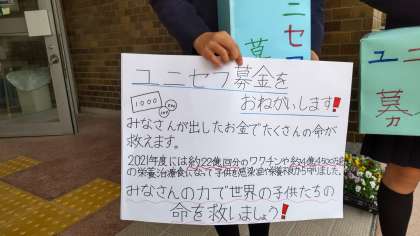 ユニセフ
募
ユニセフ募金を
おねがいします!
1000
みなさんが出したお金でたくさんの命が
救えます。
2021年度には約22億回分のワクチンや約4億4500万
の栄養治療食になって子供を感染症や栄養不良から守りました。
みなさんの力で世界の子供たちの
命を救いましょう!
ユニ
募